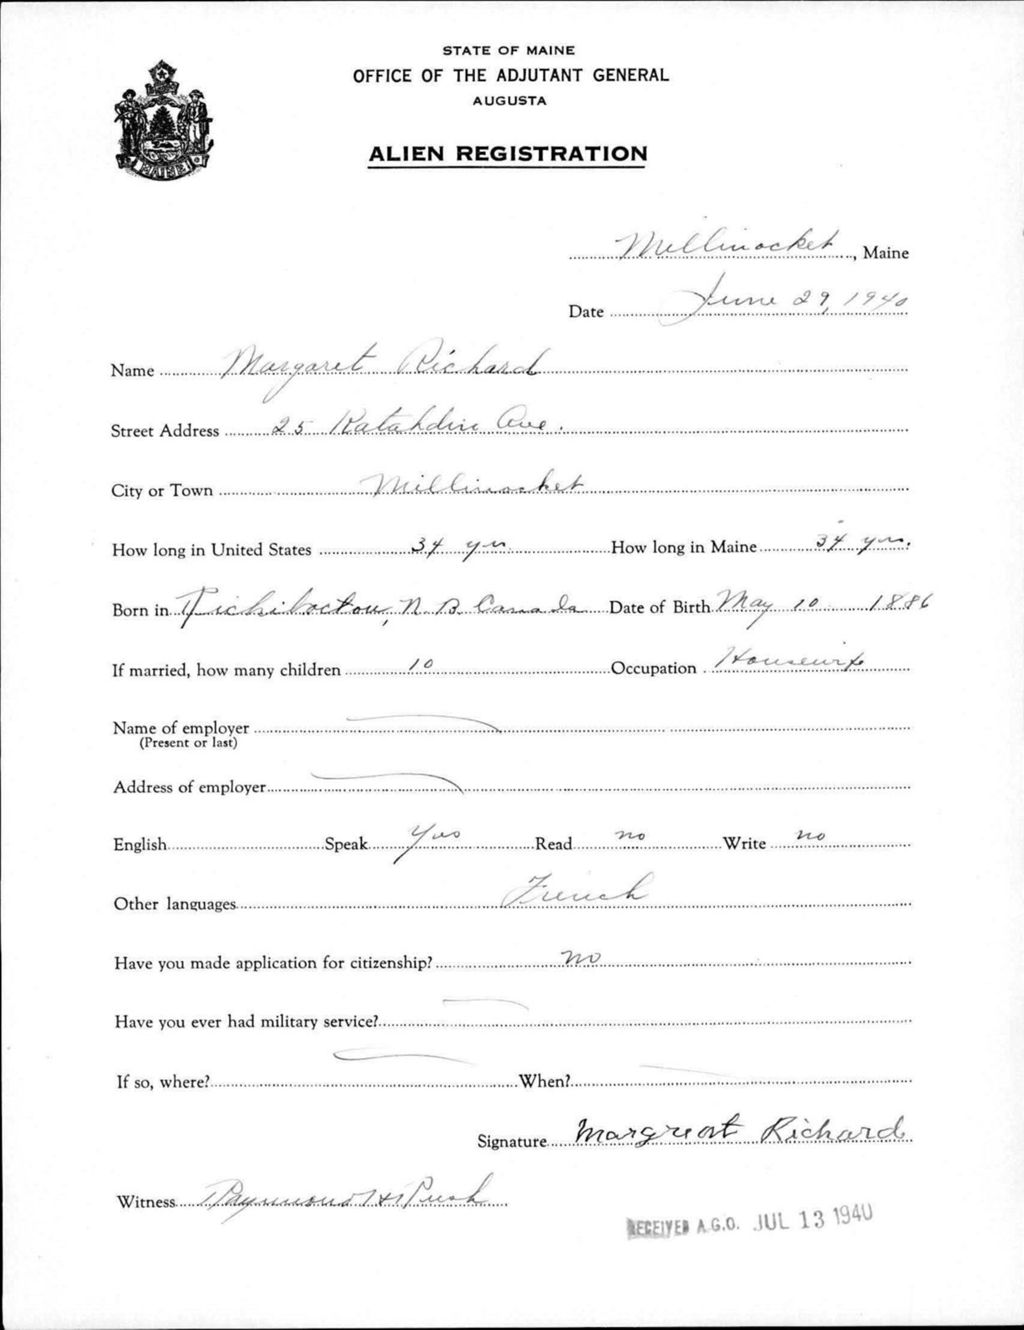 STATE OF MAINE
OFFICE OF THE ADJUTANT GENERAL
AUGUSTA
ALIEN REGISTRATION
MAINE
Millinocket, Maine
Date June 29, 1940
Name Margaret Richard
Street Address 25 Katahdin Ave.
City or Town Millinocket
How long in United States 34 yrs. How long in Maine 34 yrs.
Born in Richiboctou, N.B. Canada Date of Birth May 10 1886
If married, how many children 10 Occupation Housewife
Name of employer
(Present or last)
Address of employer
English Speak Yes Read no Write no
Other languages French
Have you made application for citizenship? No
Have you ever had military service?
If so, where? When?
Signature Margreat Richard
Witness Raymond H Rush
RECEIVED A.G.O. JUL 13 1940